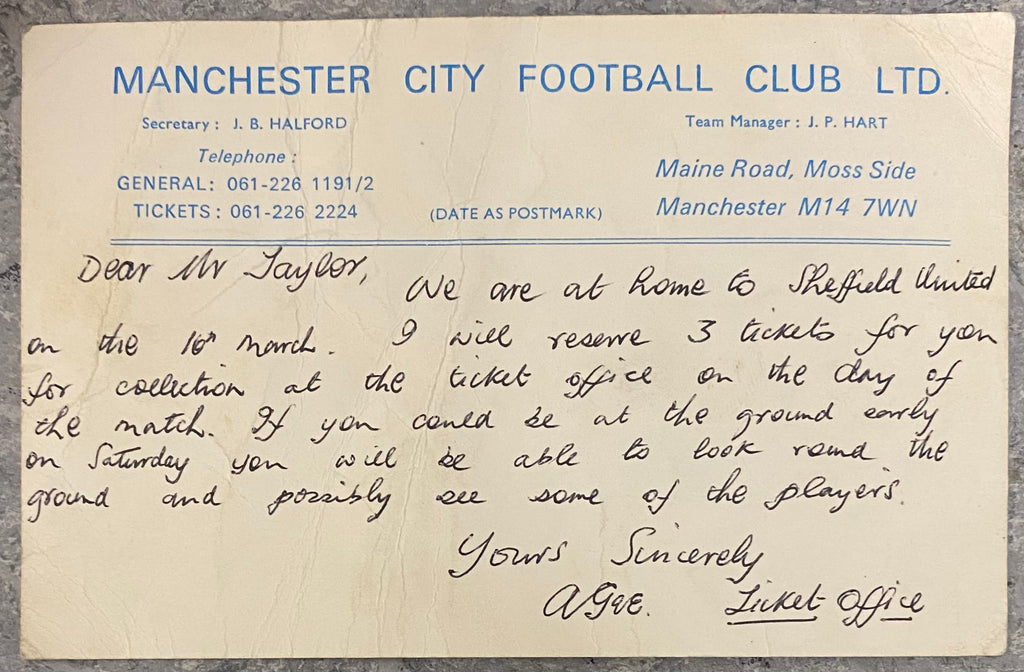 MANCHESTER CITY FOOTBALL CLUB LTD.
Secretary: J. B. HALFORD
Team Manager: J. P. HART
Telephone:
GENERAL: 061-226 1191/2
TICKETS: 061-226 2224
(DATE AS POSTMARK)
Maine Road, Moss Side
Manchester M14 7WN
Dear Mr Taylor,
We are at home to Sheffield United
on the 16th March. I will reserve 3 tickets for you
for collection at the ticket office on the day of
the match. If you could be at the ground early
on Saturday you will be able to look round the
ground and possibly see some of the players.
Yours Sincerely
Ticket Office